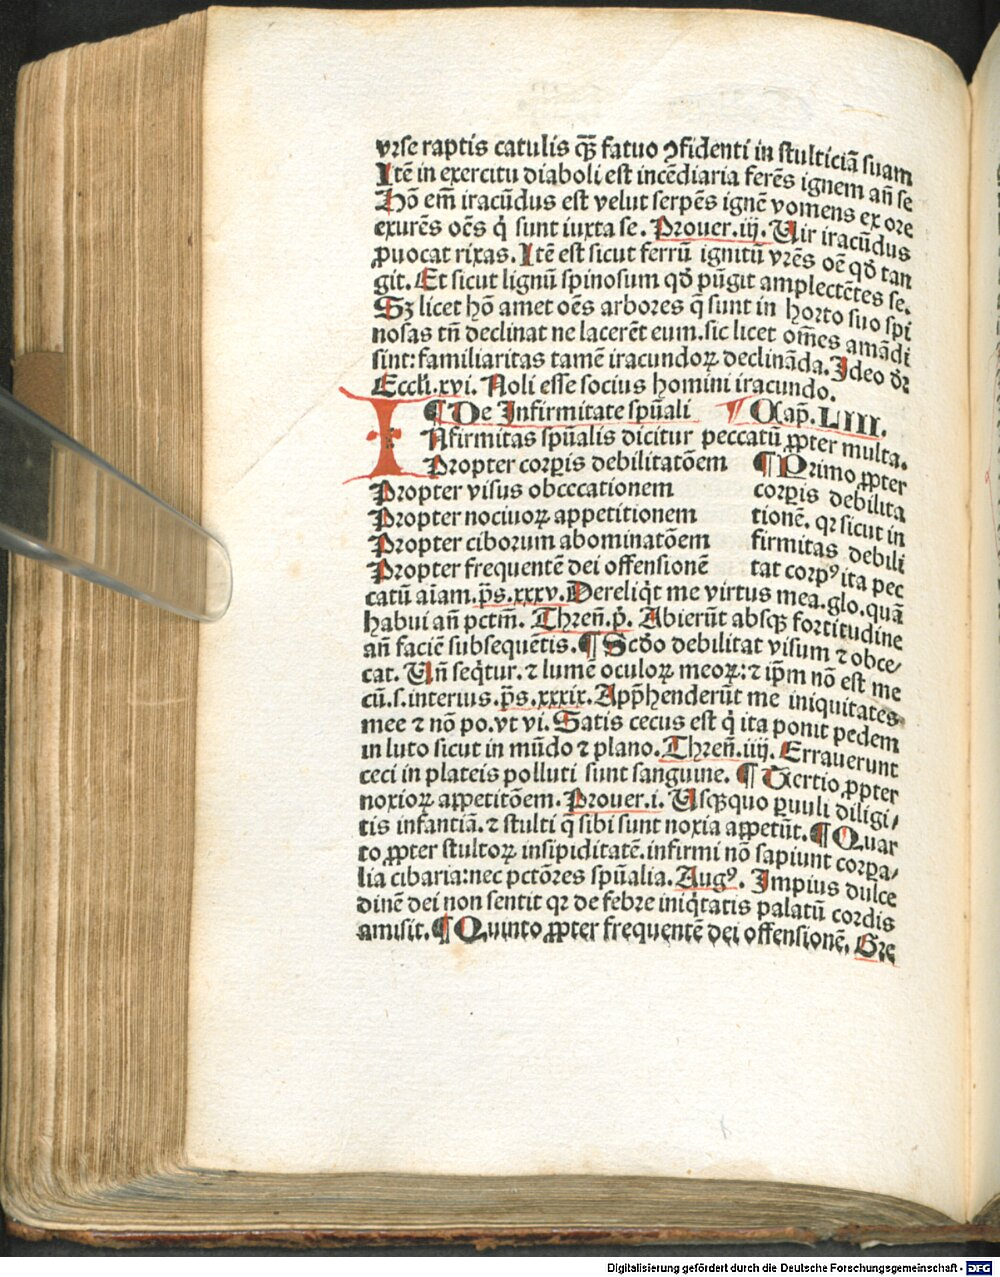 vrse raptis catulis qȝ̄ fatuo ꝯfidenti in stulticiā suam
Itē in exercitu diaboli est incēdiaria ferēs ignem añ se
Hō em̄ iracūdus est velut serpēs ignē vomens ex ore
exurēs oēs q̇ sunt iuxta se. Prouer.iij. Uir iracūdus
ꝓuocat rixas. Itē est sicut ferrū ignitū vrēs oē qđ tan
git. Et sicut lignū spinosum qđ pūgit amplectētes se.
Sꝫ licet hō amet oēs arbores q̄ sunt in horto suo spi
nosas tñ declinat ne lacerēt eum. sic licet om̄es amādi
sint: familiaritas tamē iracundoꝝ declināda. Ideo dꝛ
Eccli.xvi. Noli esse socius homini iracundo.
¶ De Infirmitate spūali ¶ Cap̄. LIII.
INfirmitas spūalis dicitur peccatū ꝓpter multa.
Propter corꝑis debilitatōem ¶ Primo ꝓpter
Propter visus obcecationem corꝑis debilita
Propter nociuoꝝ appetitionem tionē. qꝛ sicut in
Propter ciborum abominatōem firmitas debili
Propter frequentē dei offensionē tat corpꝰ ita pec
catū aīam. p̄s.xxxv. Dereliq̇t me virtus mea. glo. quā
habui añ pctm̄. Threñ.p̊. Abierūt absqȝ fortitudine
añ faciē subsequētis. ¶ Scđo debilitat visum ⁊ obce/
cat. Uñ seq̇tur. ⁊ lumē oculoꝝ meoꝝ: ⁊ ip̄m nō est me
cū.s.interius. p̄s.xxxix. App̄henderūt me iniquitates
mee ⁊ nō po.vt vi. Satis cecus est q̇ ita ponit pedem
in luto sicut in mūdo ⁊ plano. Threñ.iiij. Errauerunt
ceci in plateis polluti sunt sanguine. ¶ Tertio ꝓpter
noxioꝝ appetitōem. Prouer.i. Usqȝquo ꝑuuli diligi/
tis infantiā. ⁊ stulti q̄ sibi sunt noxia appetūt. ¶ Quar
to ꝓpter stultoꝝ insipiditatē. infirmi nō sapiunt corꝑa/
lia cibaria: nec pctōres spūalia. Augꝰ. Impius dulce
dinē dei non sentit qꝛ de febre iniq̇tatis palatū cordis
amisit. ¶ Quinto ꝓpter frequentē dei offensionē. Gre
Digitalisierung gefördert durch die Deutsche Forschungsgemeinschaft - DFG